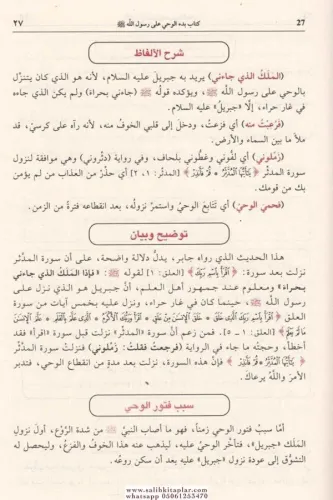 27 كتاب بدء الوحي على رسول الله ﷺ ٢٧
شرح الألفاظ
(المَلَكُ الذي جاءني) يريد به جبريلَ عليه السلام، لأنه هو الذي كان يتنزَّل
بالوحي على رسول الله ﷺ، ويؤكده قولُه ﷺ (جاءني بحراء) ولم يكن الذي جاءه
في غار حراء، إلَّا «جبريلُ» عليه السلام.
(فرَعِبْتُ منه) أي فزعتُ، ودخلَ إلى قلبي الخوفُ منه، لأنه رآه على كرسيّ، قد
ملأ ما بين السماء والأرض.
(زمّلوني) أي لفُّوني وغطُّوني بلحاف، وفي رواية (دثّروني) وهي موافقة لنزول
سورة المدثّر ﴿يَٰٓأَيُّهَا ٱلْمُدَّثِّرُ * قُمْ فَأَنذِرْ﴾ [المدثر: ١، ٢] أي حذّر من العذاب من لم يؤمن
بك من قومك.
(فحمي الوحيُ) أي تَتَابعَ الوحيُ واستمرَّ نزولُه، بعد انقطاعه فترةً من الزمن.
توضيح وبيان
هذا الحديث الذي رواه جابر، يدلُّ دلالة واضحة، على أن سورة المدَّثر
نزلت بعد سورة: ﴿ٱقْرَأْ بِٱسْمِ رَبِّكَ﴾ [العلق: ١] لقوله ﷺ: «فإذا المَلَكُ الذي جاءني
بحراء» ومعلوم عند جمهور أهل العلم، أنَّ جبريل هو الذي نزل على
رسول الله ﷺ، حينما كان في غار حراء، ونزل عليه بخمس آيات من سورة
العلق ﴿ٱقْرَأْ بِٱسْمِ رَبِّكَ ٱلَّذِى خَلَقَ * خَلَقَ ٱلْإِنسَٰنَ مِنْ عَلَقٍ * ٱقْرَأْ وَرَبُّكَ ٱلْأَكْرَمُ * ٱلَّذِى عَلَّمَ بِٱلْقَلَمِ * عَلَّمَ ٱلْإِنسَٰنَ
مَا لَمْ يَعْلَمْ﴾ [العلق: ١ ـ ٥]. فمن زعم أنَّ سورة «المدثر» نزلت قبل سورة «اقرأ» فقد
أخطأ، وحجتُه ما جاء في الرواية (فرجعتُ فقلتُ: زمّلوني) فنزلتْ سورةُ المدثّر
﴿يَٰٓأَيُّهَا ٱلْمُدَّثِّرُ * قُمْ فَأَنذِرْ﴾ فإنَّ هذه السورة، نزلت بعد مدةٍ من انقطاع الوحي، فتدبر
الأمرَ واللَّهُ يرعاكَ.
سبب فتور الوحي
أمَّا سببُ فتور الوحي زمناً، فهو ما أصاب النبيَّ ﷺ من شدة الرَّوْعِ، أولَ نزولِ
المَلَك «جبريل»، فتأخَّر الوحيُ عليه، ليذهب عنه هذا الخوفُ والفزعُ، وليحصل له
التشوُّق إلى عودة نزول «جبريل» عليه بعد أن سكن روعُه.
www.salihkitaplar.com
whatsapp 05061253470